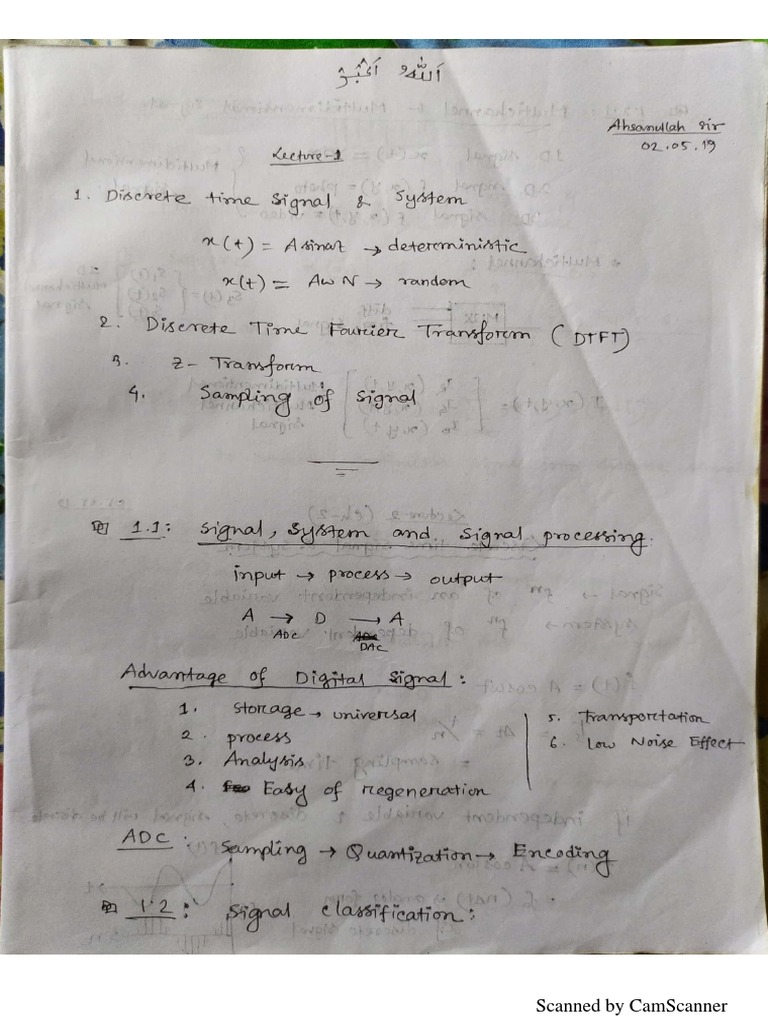 الله أكبر
Ahsanullah sir
02.05.19
Lecture-1
1. Discrete time signal & system
x(t) = A sinat → deterministic
x(t) = AWN → random
2. Discrete Time Fourier Transform (DTFT)
3. Z-Transform
4. Sampling of signal
1.1: Signal, system and signal processing.
input → process → output
A → D → A
ADC DAC
Advantage of Digital Signal:
1. storage → universal
2. process
3. Analysis
4. Easy of regeneration
5. Transportation
6. Low Noise Effect
ADC: Sampling → Quantization → Encoding
1.2: Signal classification:
Scanned by CamScanner